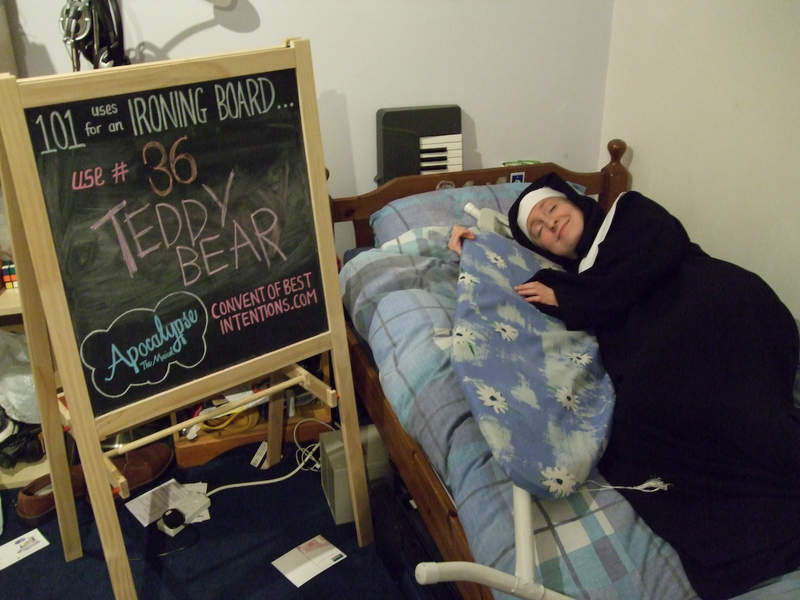 101 uses for an IRONING BOARD...
use # 36
TEDDY
BEAR
Apocalypse
The Musical
CONVENT OF BEST
INTENTIONS.COM